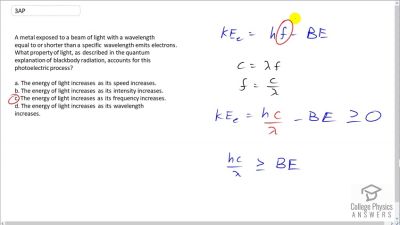 3AP
A metal exposed to a beam of light with a wavelength
equal to or shorter than a specific wavelength emits electrons.
What property of light, as described in the quantum
explanation of blackbody radiation, accounts for this
photoelectric process?
a. The energy of light increases as its speed increases.
b. The energy of light increases as its intensity increases.
c. The energy of light increases as its frequency increases.
d. The energy of light increases as its wavelength
increases.
KEₑ = hf - BE
c = λf
f = c/λ
KEₑ = hc/λ - BE ≥ 0
hc/λ ≥ BE
College Physics
ANSWERS.COM